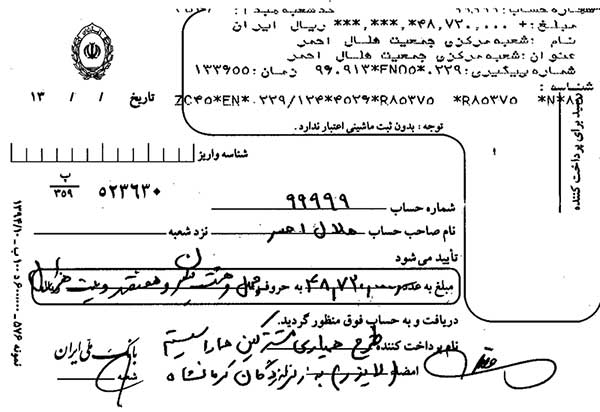 شماره حساب: ۹۹۹۹۹ کد شعبه مبدا:
مبلغ: +۴۸,۷۲۰,۰۰۰*,***,*** ریال ایران
نام : شعبه مرکزی جمعیت هلال احمر
عنوان: شعبه مرکزی جمعیت هلال احمر
شماره پیگیری: ۲۲۹.*۹۶۰۹۱۳*FN۵۵ زمان: ۱۳۳۶۵۵
شناسه :
ZC۴۵*EN*۰۲۲۹/۱۲۴*۴۵۲۶*R۸۵۳۷۵ *R۸۵۳۷۵ *N*۸
تاریخ / / ۱۳
توجه : بدون ثبت ماشینی اعتبار ندارد.
رسید برای پرداخت کننده
شناسه واریز
۵۲۳۶۳۰ پ/۳۵۹
شماره حساب ۹۹۹۹۹
نام صاحب حساب هلال احمر نزد شعبه
تأیید می شود
مبلغ به عدد ۴۸,۷۲۰,۰۰۰ به حروف چهل و هشت میلیون و هفتصد و بیست هزار ریال
دریافت و به حساب فوق منظور گردید.
نام پرداخت کننده طرح همیاری مشترکین هاراسیستم
امضاء (لایزر) به زلزلزدگان کرمانشاه
بانک ملی ایران
شعبه
نمونه ۵۷۲۶ ــ ۶۰۰۰۰۰۰ د ۱۰۰ ب ــ ۱۳۹۴/۱۰